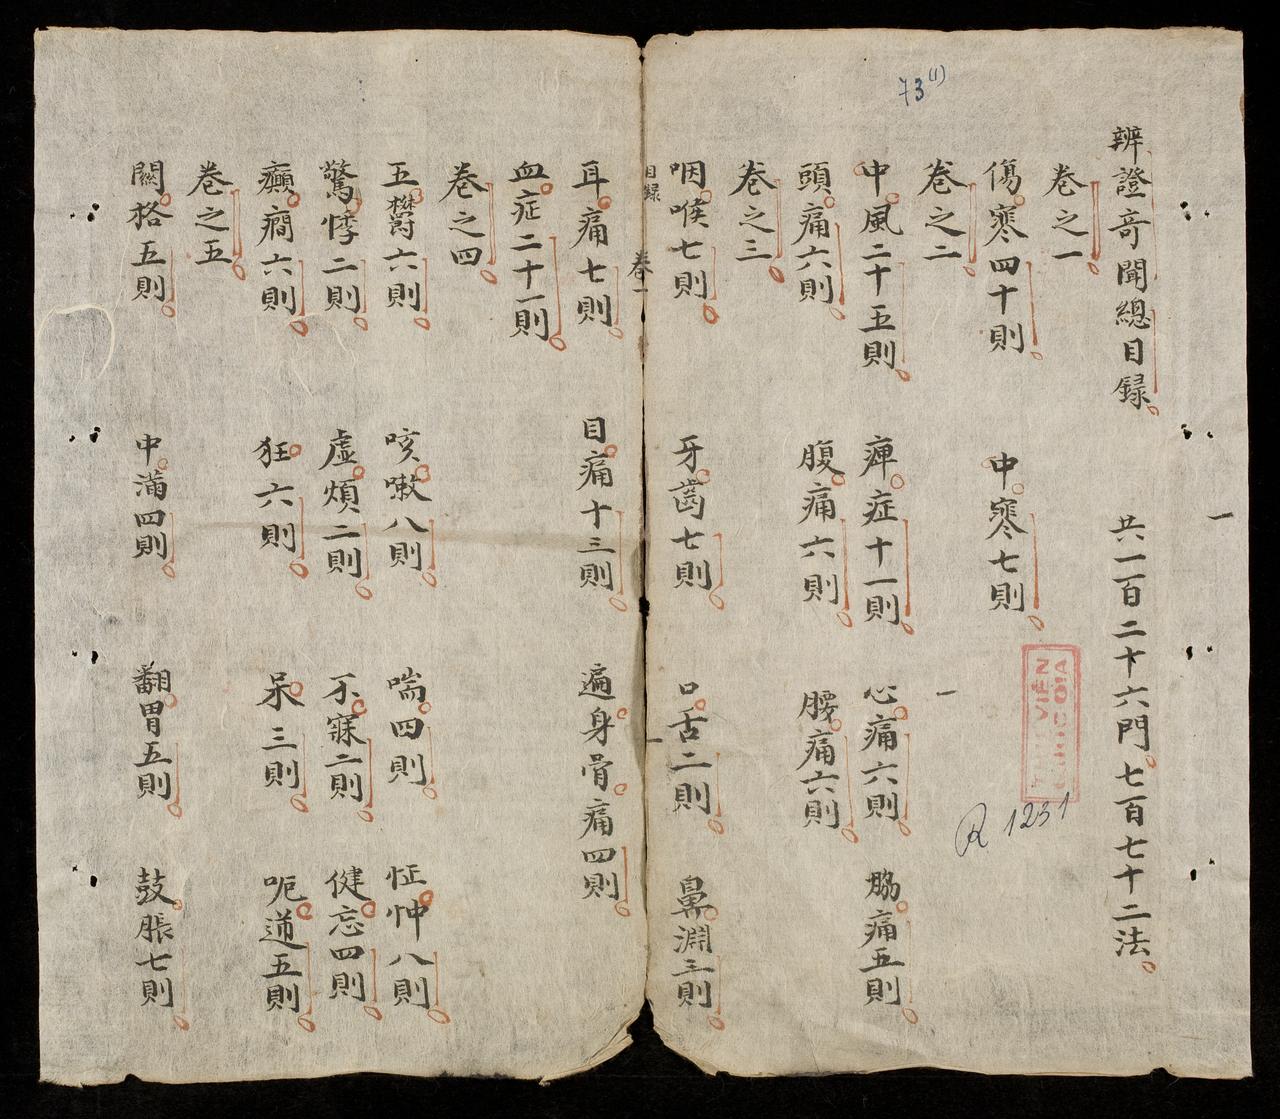 73(1)
辨證奇聞總目録 共一百二十六門七百七十二法
卷之一
傷寒四十則 中寒七則
R 1231
卷之二
中風二十五則 痺症十一則 心痛六則 脇痛五則
頭痛六則 腹痛六則 腰痛六則
卷之三
咽喉七則 牙齒七則 口舌二則 鼻淵三則
目録 卷一
耳痛七則 目痛十三則 遍身骨痛四則
血症二十一則
卷之四
五欝六則 咳嗽八則 喘四則 怔忡八則
驚悸二則 虛煩二則 不寐二則 健忘四則
癲癇六則 狂六則 呆三則 呃逆五則
卷之五
關格五則 中滿四則 翻胃五則 鼓脹七則